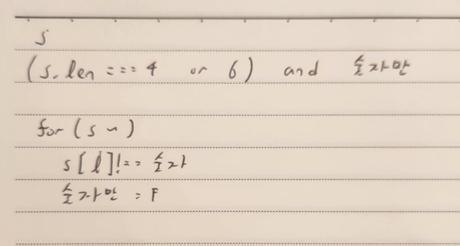 s
(s.len === 4 or 6) and 숫자만
for (s ~)
s[l]!== 숫자
숫자만 = F